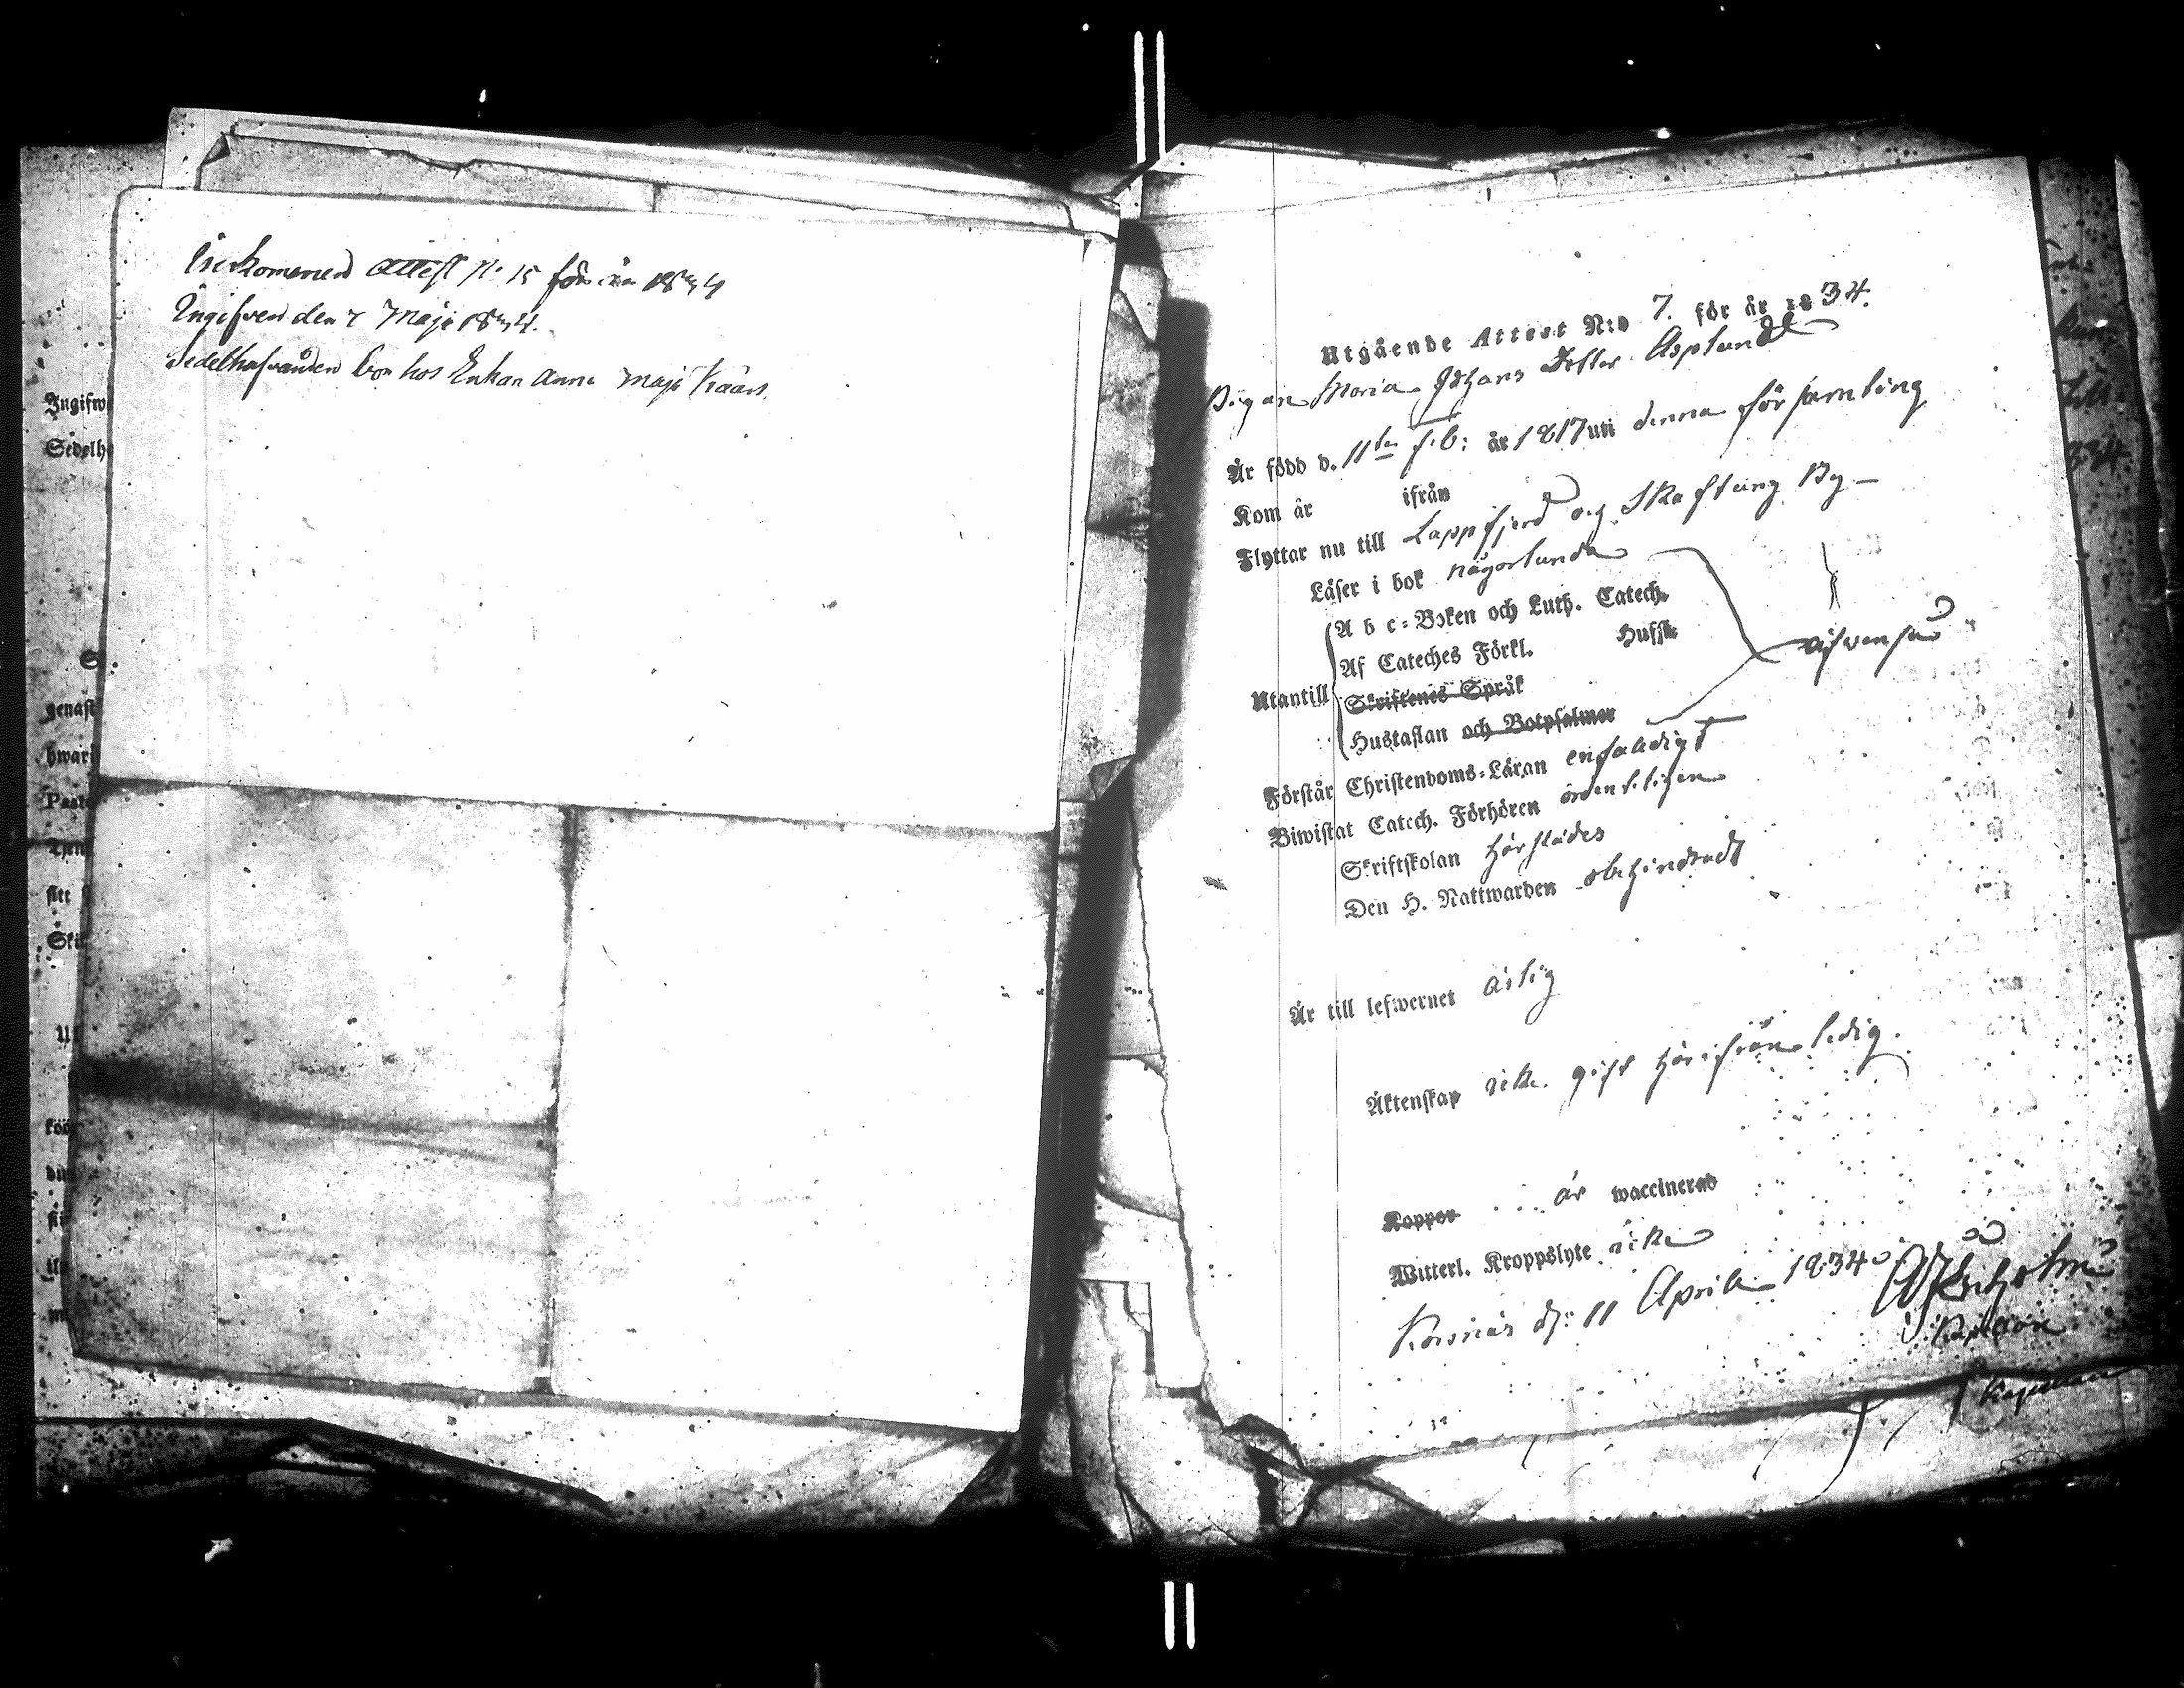 Inkommen attest N: 15 för år 1834
Ingifven den 7 Maji 1834.
Sedelhafvanden bor hos Enkan Anna Maja
Utgående Attest N:o 7. för år 1834.
Pigan Maria Johans Dotter Asplund
Är född d. 11te feb: år 1817 uti denna församling
Kom år ifrån
Flyttar nu till Lappfjerd og Skaftung By
Läser i bok någorlunda
A b c-Boken och Luth. Catech.
Af Cateches Förkl. Hufst.
Utantill
Skriftenes Språk
äfvenså
Hustaflan och Botpsalmer
Förstår Christendoms-Läran enfaldigt
Biwistat Catech. Förhören ordentligen
Skriftskolan härstädes
Den H. Nattwarden obehindradt
Är till lefwernet ärlig
Äktenskap icke gift härifrån ledig.
Koppor är waccinerad
Witterl. Kroppslyte icke
Korsnäs d: 11 April 1834
Kapellan
Kapellan
Ingifw
Sedelh
genast
hwar
Past
Skil